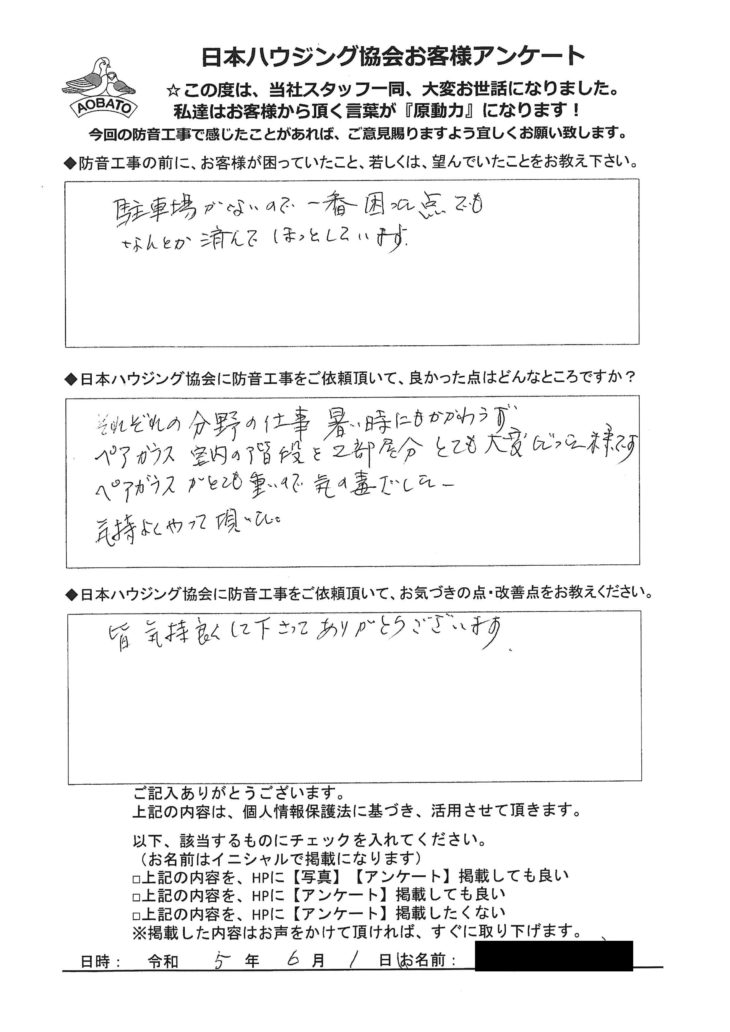 日本ハウジング協会お客様アンケート
AOBATO
☆この度は、当社スタッフ一同、大変お世話になりました。
私達はお客様から頂く言葉が『原動力』になります！
今回の防音工事で感じたことがあれば、ご意見賜りますよう宜しくお願い致します。
◆防音工事の前に、お客様が困っていたこと、若しくは、望んでいたことをお教え下さい。
駐車場がないので 一番困った点でも
なんとか済んでほっとしています.
◆日本ハウジング協会に防音工事をご依頼頂いて、良かった点はどんなところですか？
それぞれの分野の仕事 暑い時にもかかわらず
ペアガラス 室内の階段を2部屋分 とても大変だった様です
ペアガラスがとても重いので 気の毒でした
気持よくやって頂いた。
◆日本ハウジング協会に防音工事をご依頼頂いて、お気づきの点・改善点をお教えください。
皆 気持良くして下さってありがとうございます.
ご記入ありがとうございます。
上記の内容は、個人情報保護法に基づき、活用させて頂きます。
以下、該当するものにチェックを入れてください。
（お名前はイニシャルで掲載になります）
□上記の内容を、HPに【写真】【アンケート】掲載しても良い
□上記の内容を、HPに【アンケート】掲載しても良い
□上記の内容を、HPに【アンケート】掲載したくない
※掲載した内容はお声をかけて頂ければ、すぐに取り下げます。
日時： 令和 5 年 6 月 1 日 お名前：